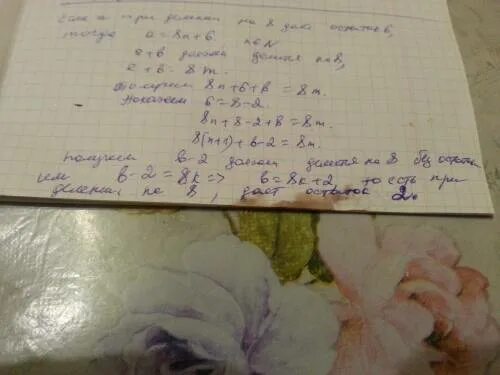 Если a при делении на 8 даёт остаток 6,
тогда a = 8n+6 n∈N
a+b должен делится на 8,
a+b = 8m.
Получаем 8n+6+b = 8m.
6 = 8-2.
8n+8-2+b=8m.
8(n+1)+b-2=8m.
получаем b-2 должен делится на 8 без остатка
b-2=8k => b=8k+2, то есть при
делении на 8, даёт остаток 2.